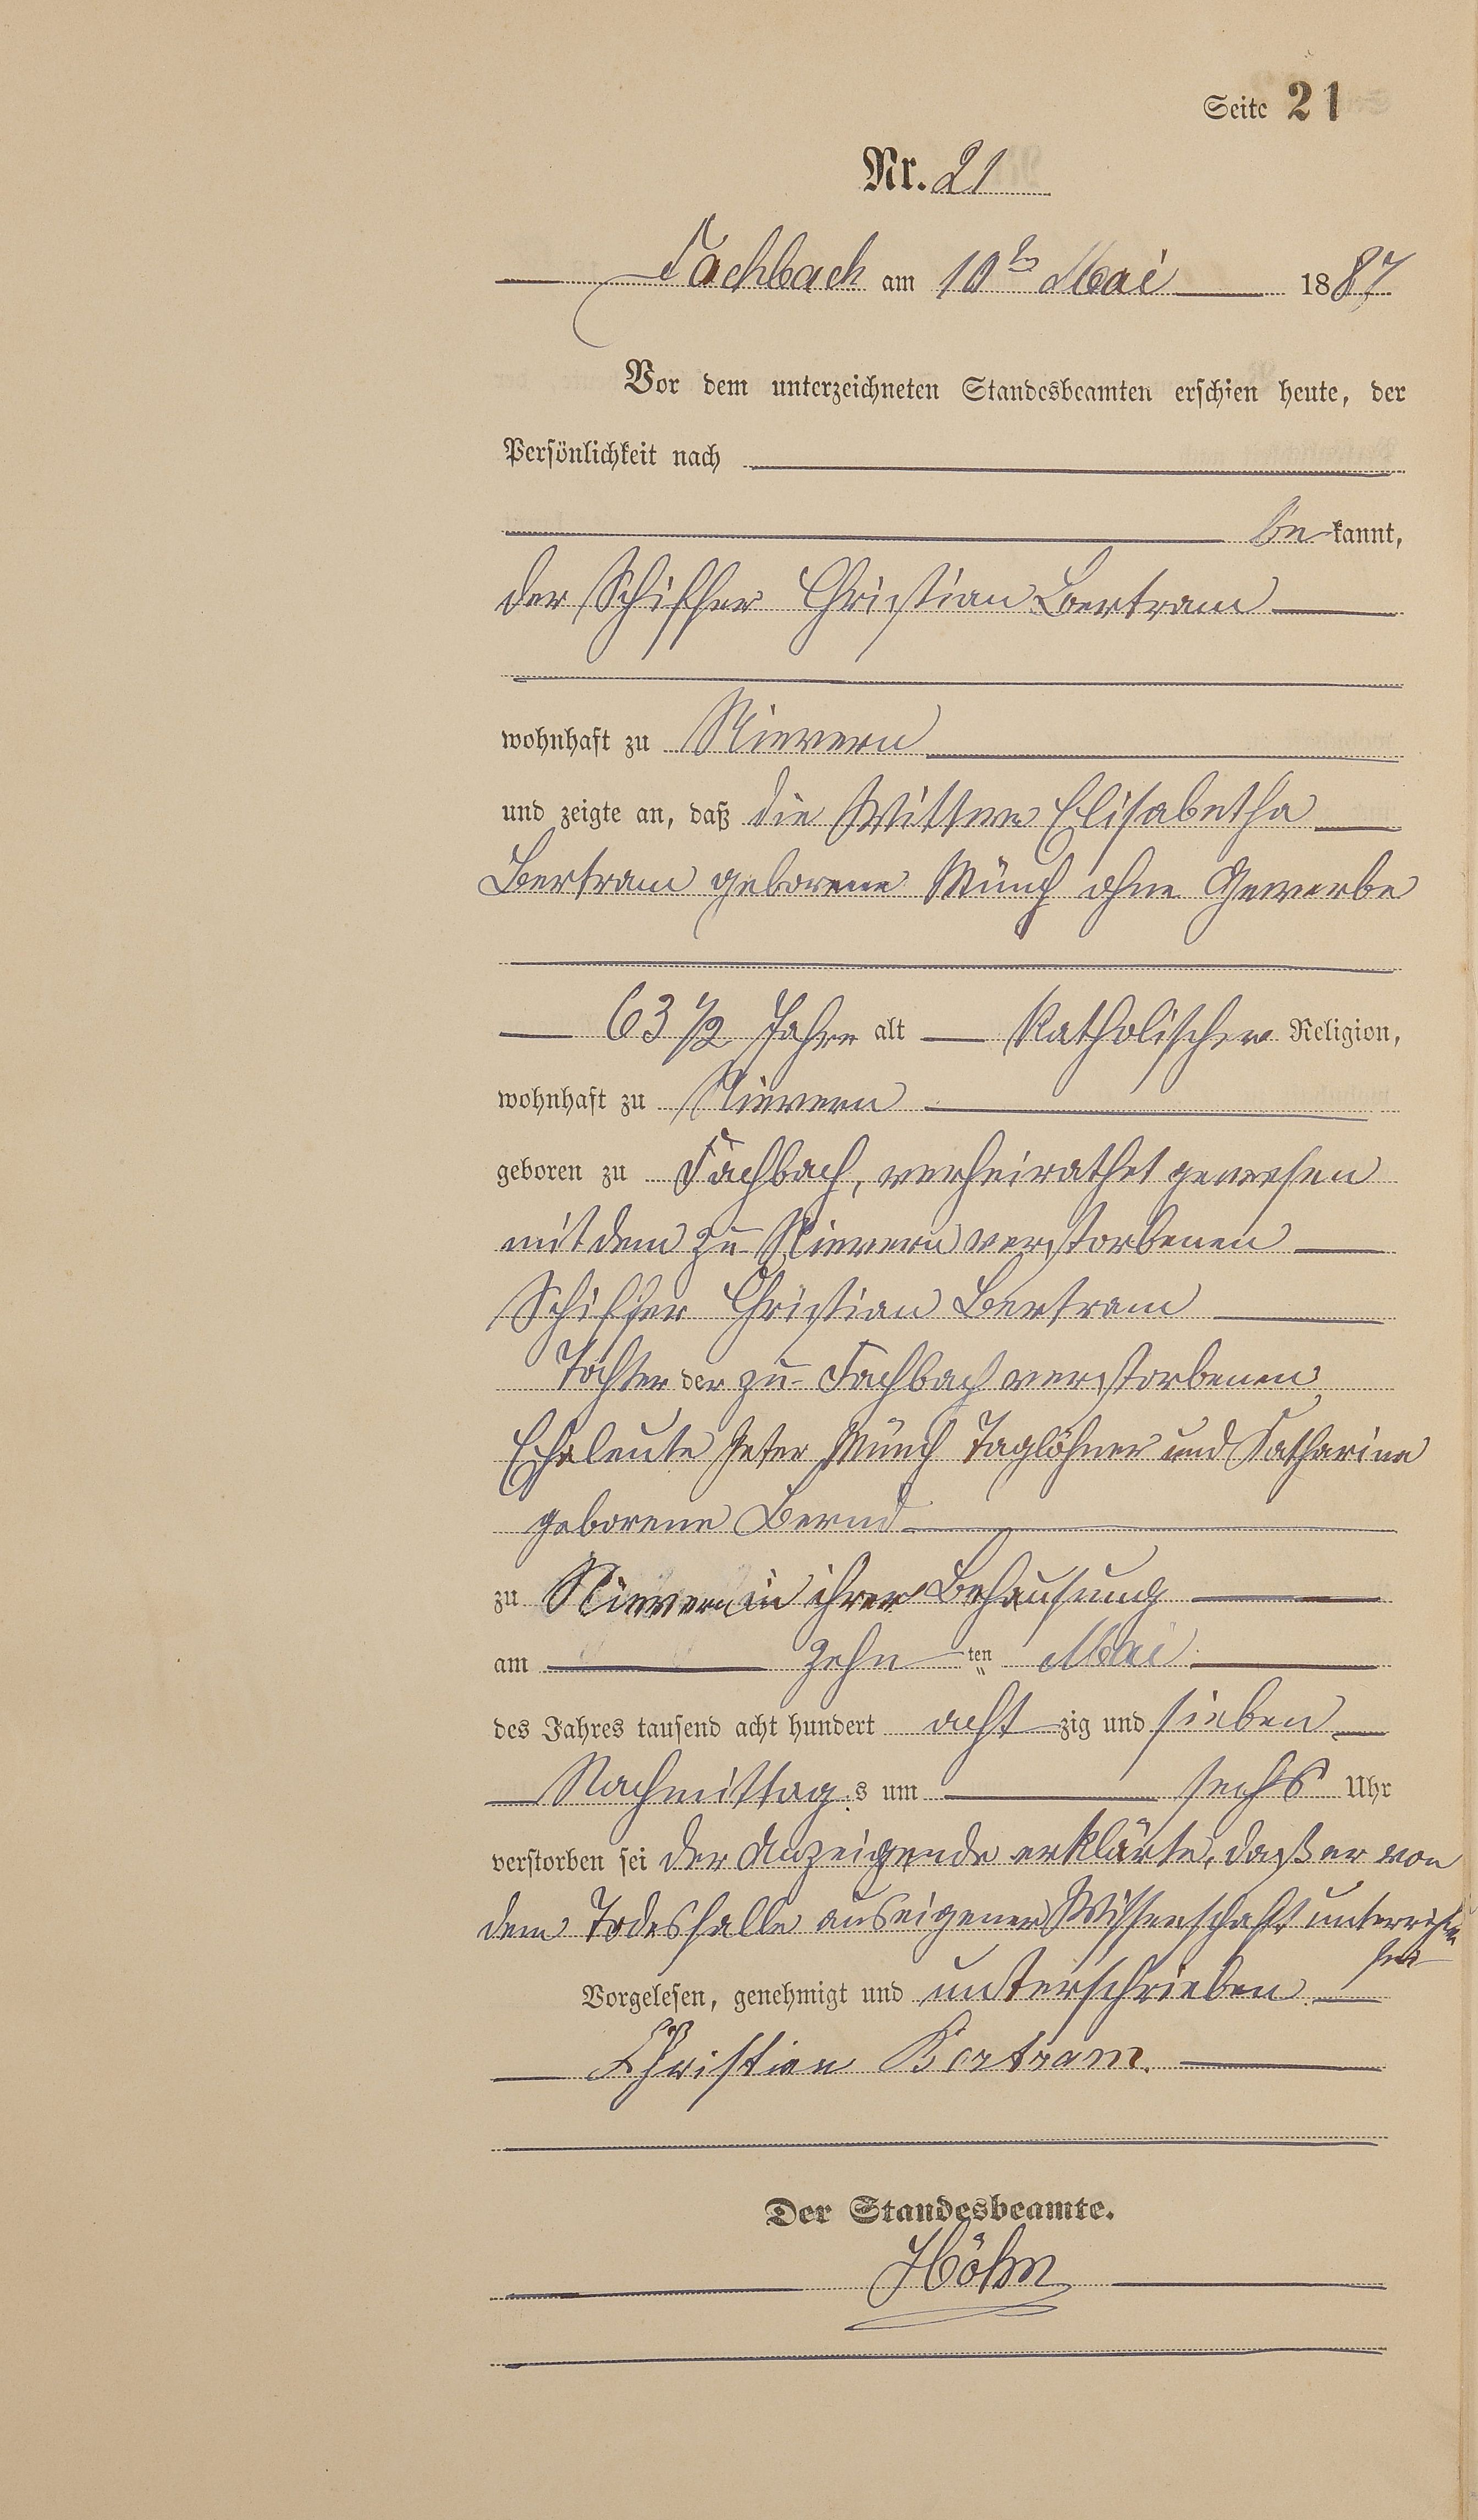 Seite 21
Nr. 21
Fachbach am 10ten Mai 1887
Vor dem unterzeichneten Standesbeamten erschien heute, der
Persönlichkeit nach
be kannt,
der Schiffer Christian Bertram
wohnhaft zu Nievern
und zeigte an, daß die Wittwe Elisabetha
Bertram geborene Münch ohne Gewerbe
63 1/2 Jahre alt Katholischer Religion,
wohnhaft zu Nievern
geboren zu Fachbach, verheirathet gewesen
mit dem zu Nievern verstorbenen
Schiffer Christian Bertram
Tochter der zu Fachbach verstorbenen
Eheleute Peter Münch Taglöhner und Katharina
geborene Bernd
zu Nievern in ihrer Behausung
am zehn ten Mai
des Jahres tausend acht hundert acht zig und sieben
Nachmittag s um sechs Uhr
verstorben sei der Anzeigende erklärte, daß er von
dem Todesfalle aus eigener Wissenschaft unterrichtet
sei
Vorgelesen, genehmigt und unterschrieben
Christian Bertram.
Der Standesbeamte.
Höhn